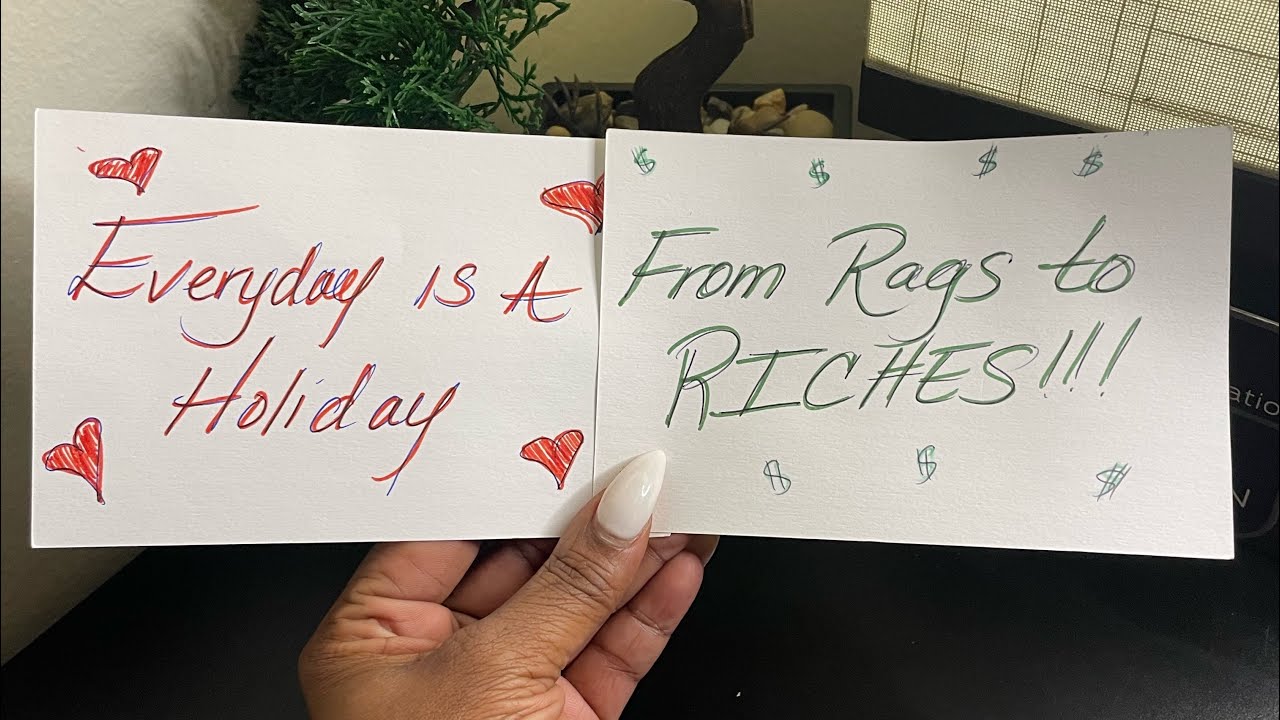 Everyday is A
Holiday
$ $ $ $
From Rags to
RICHES!!!
$ $ $